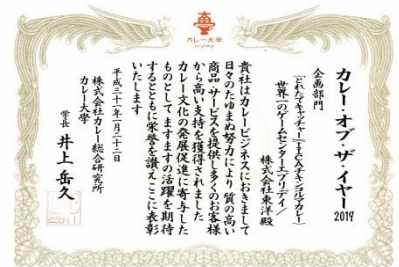 カレー大學
カレー・オブ・ザ・イヤー2019
企画部門
世界一のゲームセンターエブリデイ/
株式会社東洋殿
貴社はカレービジネスにおきまして
日々のたゆまぬ努力により質の高い
商品・サービスを提供し多くのお客様
から高い支持を獲得されました
カレー文化の発展促進に寄与した
ものとしてますますの活躍を期待
するとともに栄誉を讃えここに表彰
いたします
平成三十一年一月二十二日
株式会社カレー総合研究所
カレー大學
学長 井上岳久